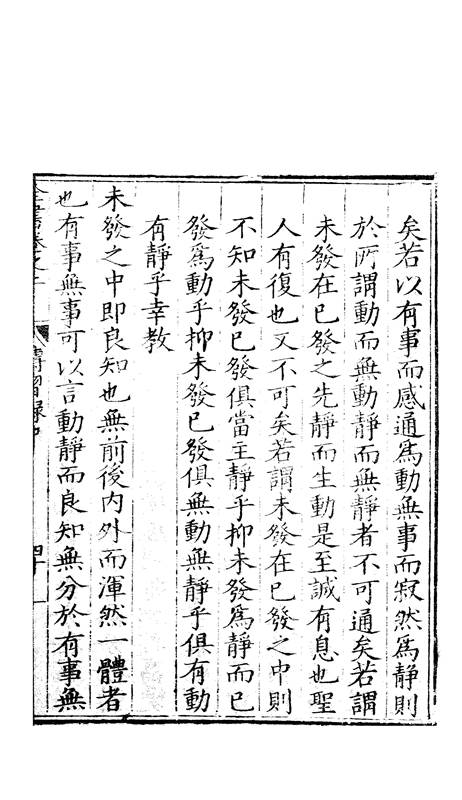 矣若以有事而感通爲動無事而寂然爲靜則
於所謂動而無動靜而無靜者不可通矣若謂
未發在已發之先靜而生動是至誠有息也聖
人有復也又不可矣若謂未發在已發之中則
不知未發已發俱當主靜乎抑未發爲靜而已
發爲動乎抑未發已發俱無動無靜乎俱有動
有靜乎幸教
未發之中即良知也無前後内外而渾然一體者
也有事無事可以言動靜而良知無分於有事無
傳習録中
四十